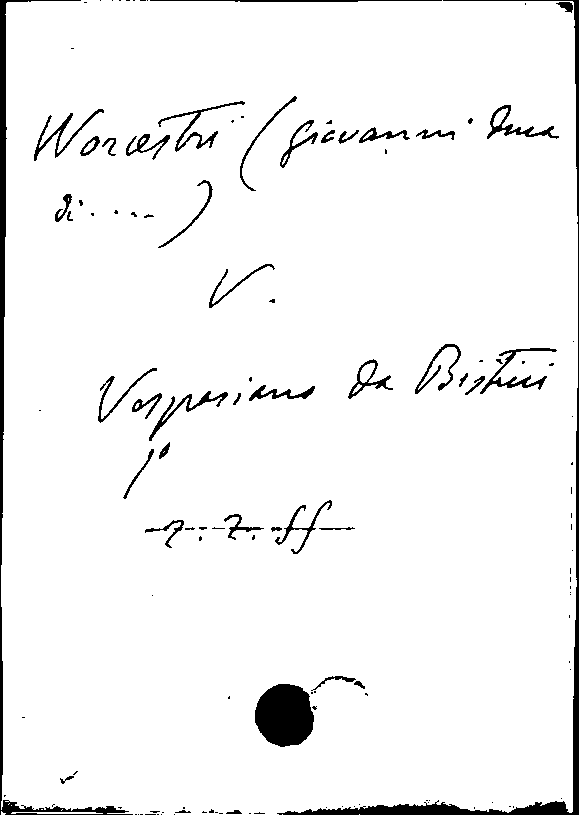 Worcestrii (Giovanni duca
di.....)
V.
Vespasiano da Bisticci
1º
z. z. ff